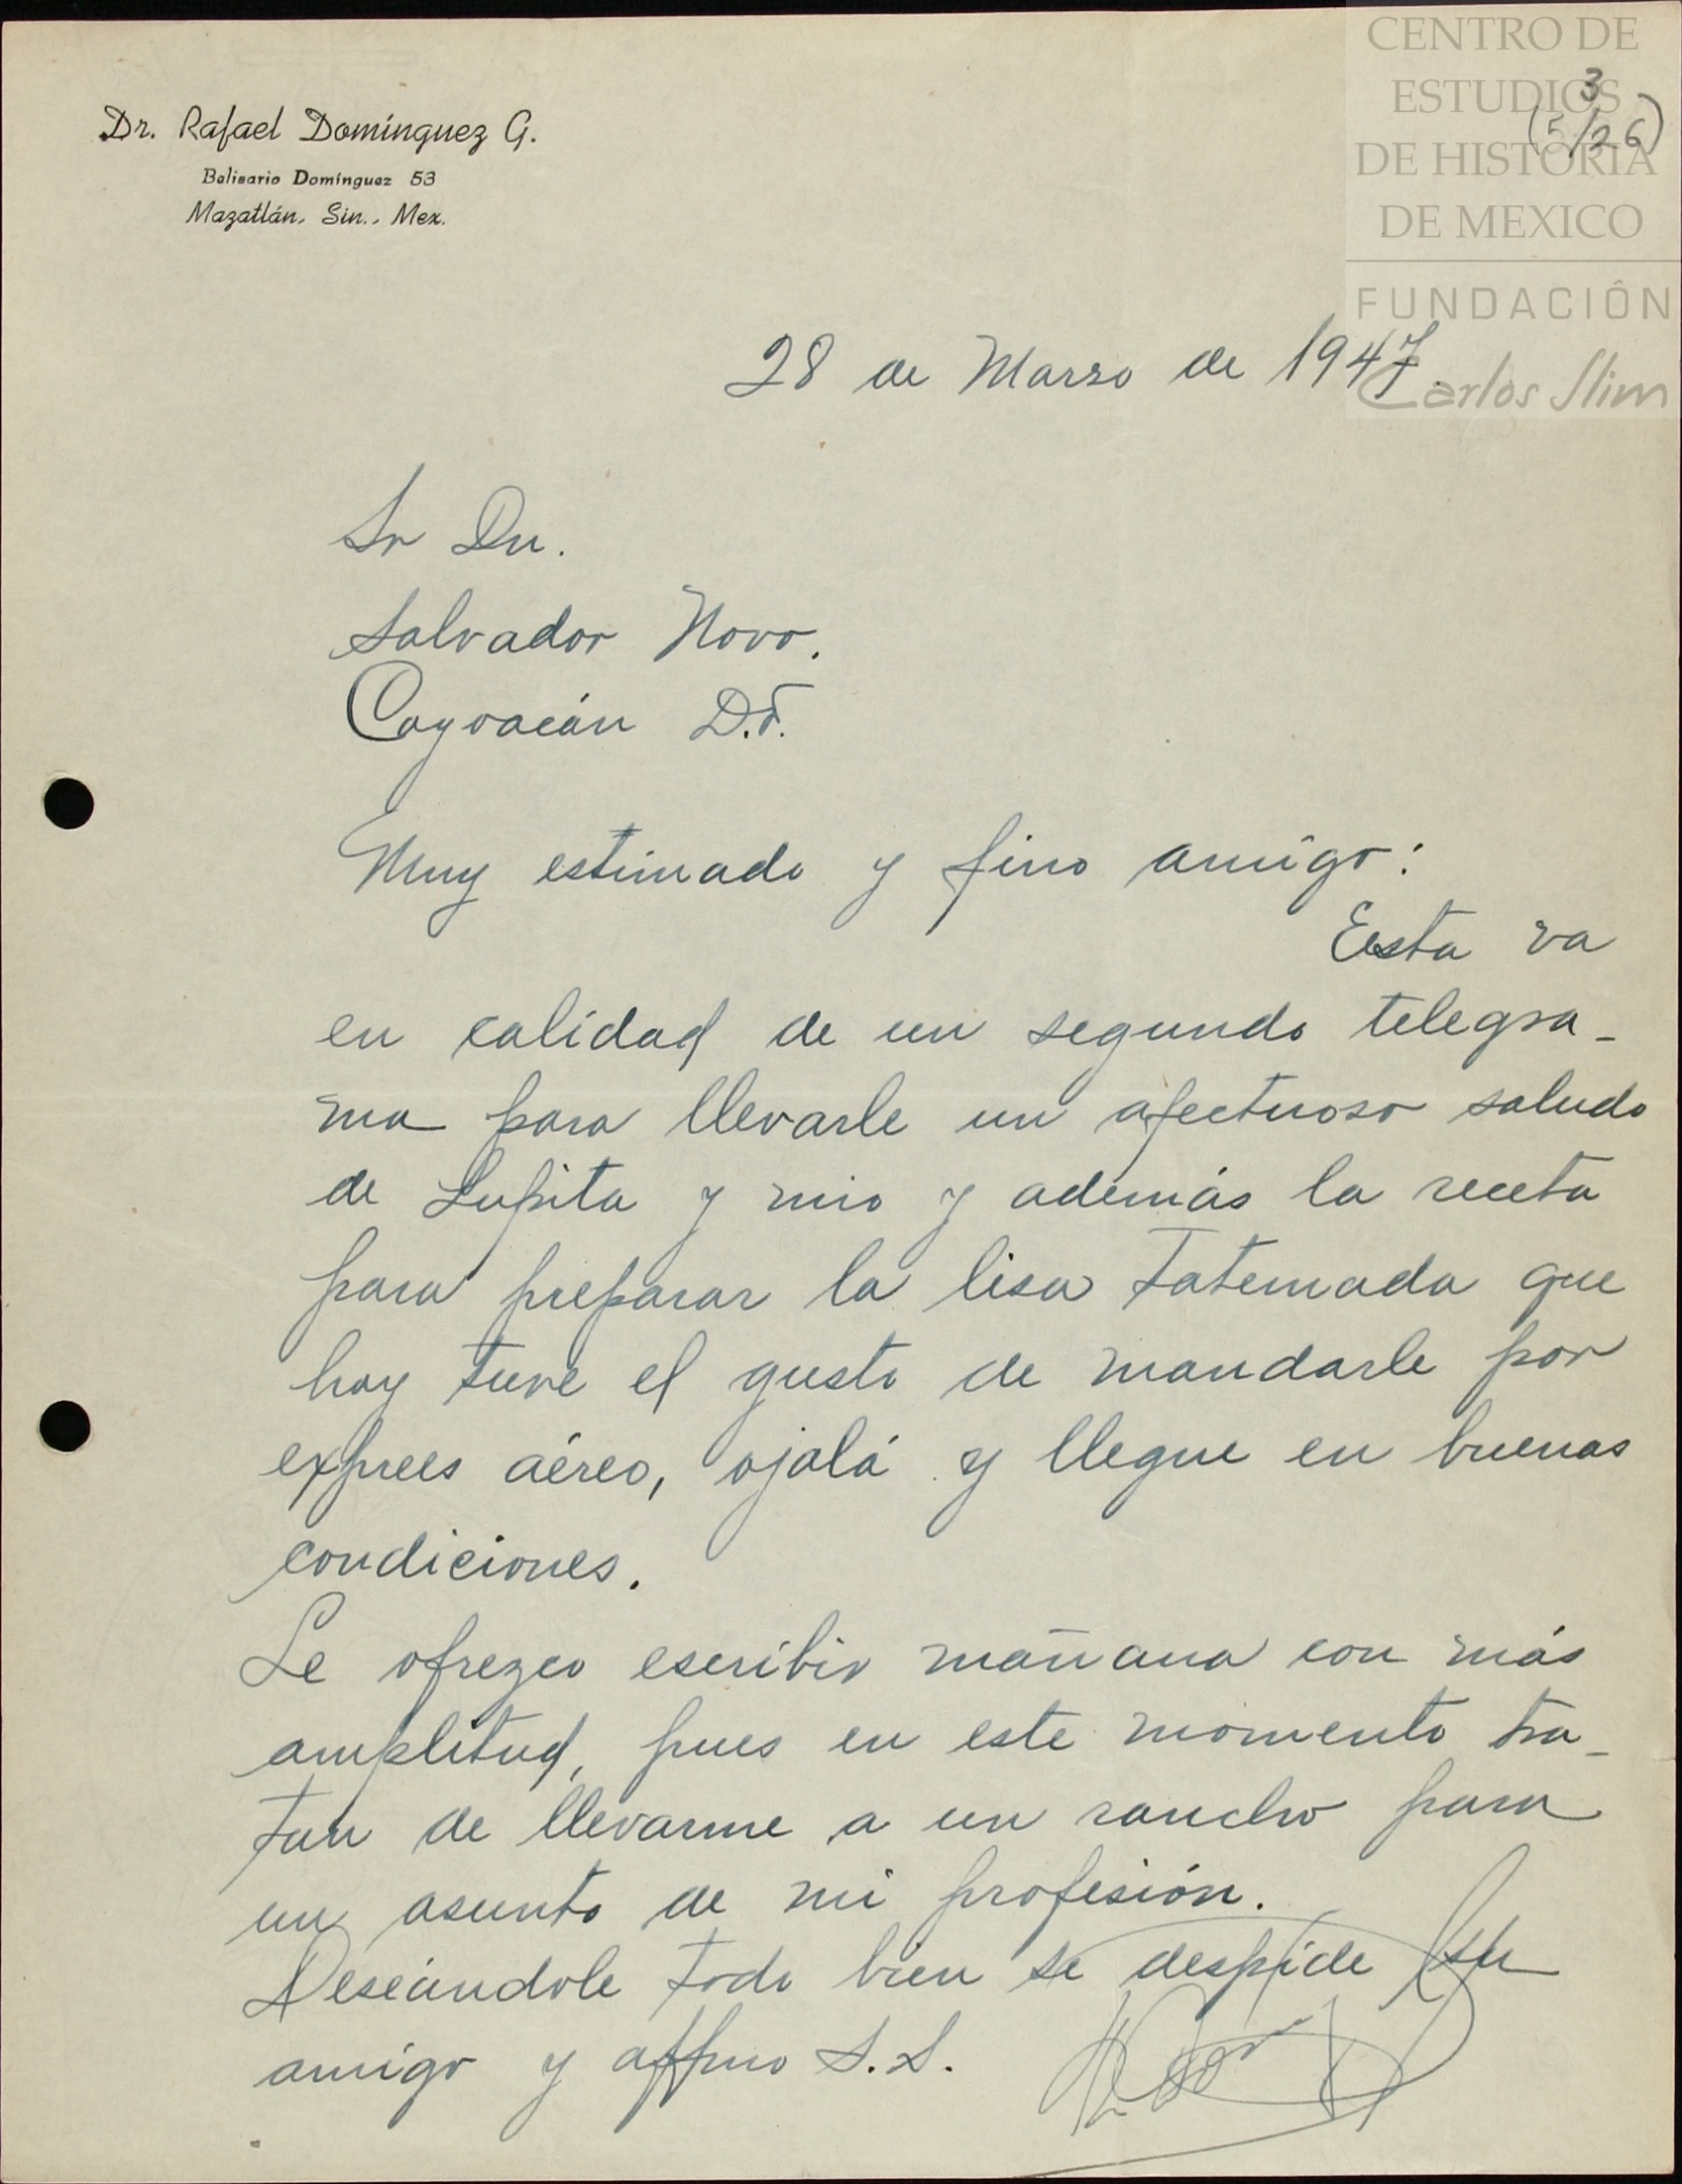 CENTRO DE
ESTUDIOS
DE HISTORIA
DE MEXICO
FUNDACIÓN
Carlos Slim
3
(5/26)
Dr. Rafael Domínguez G.
Belisario Domínguez 53
Mazatlán, Sin., Mex.
28 de Marzo de 1947.
Sr Dn.
Salvador Novo.
Coyoacán D.F.
Muy estimado y fino amigo:
Esta va
en calidad de un segundo telegra-
ma para llevarle un afectuoso saludo
de Lupita y mio y además la receta
para preparar la lisa tatemada que
hoy tuve el gusto de mandarle por
exprees aéreo, ojalá y llegue en buenas
condiciones.
Le ofrezco escribir mañana con más
amplitud, pues en este momento tra-
tan de llevarme a un rancho para
un asunto de mi profesión.
Deseándole todo bien se despide su
amigo y affmo S.S.